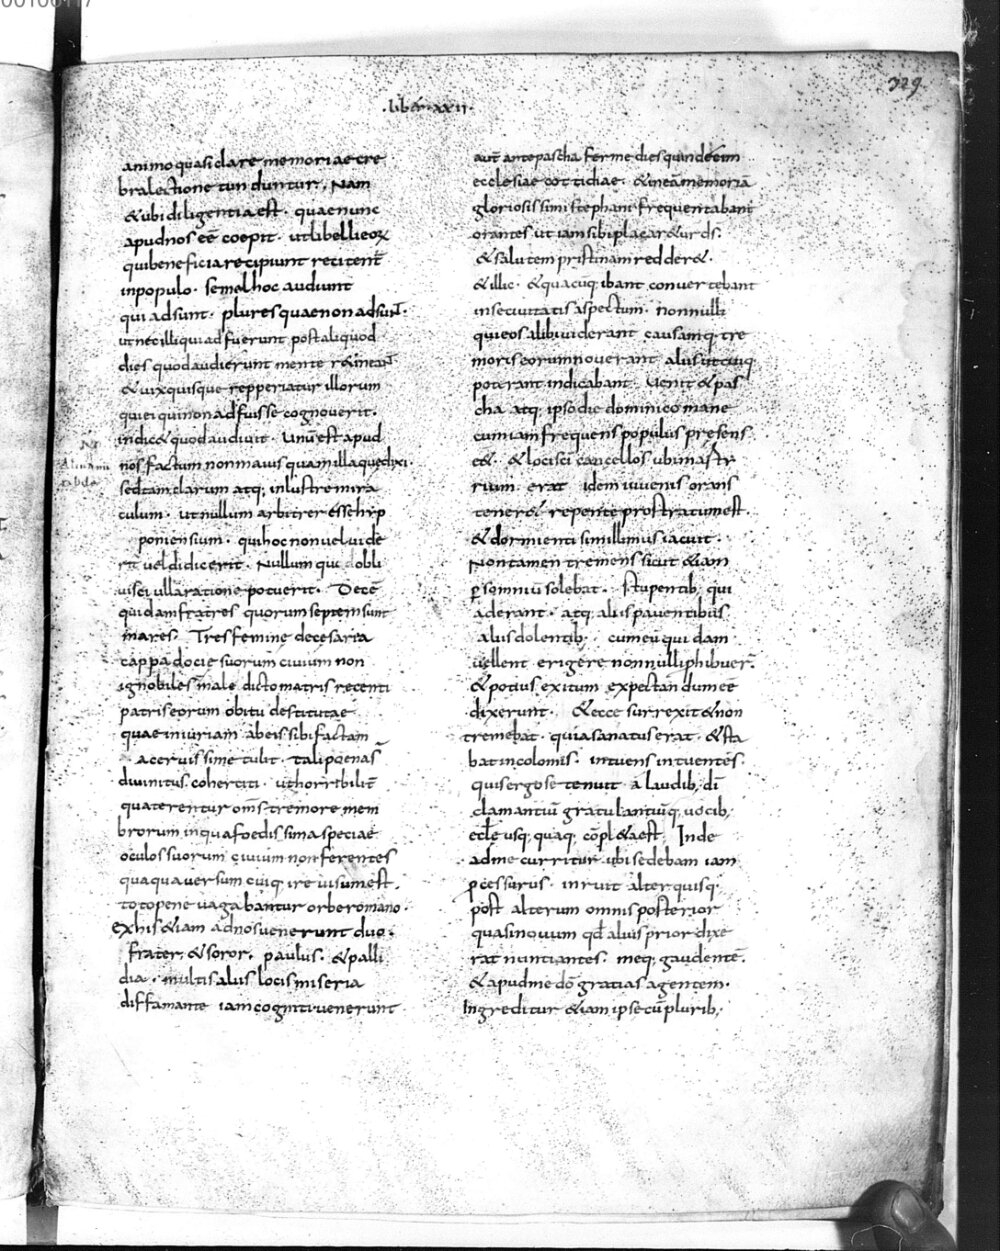 329
·liber·xxii·
animo quasi clare memoriae cre
bra lectione tunduntur. Nam
& ubi diligentia est· quae nunc
apud nos eē coepit· ut libelli eoꝝ
qui beneficia recipiunt recitent̄
in populo· semel hoc audiunt
qui adsunt· plures quae non adsunt̄·
ut nec illi qui adfuerunt post aliquod
dies quod audierunt mente r&ineant̄
& uix quisque repperiatur illorum
qui ei qui non adfuisse cognouerit·
indic& quod audiuit· Unū est apud
nos factum non maius quam illa que dixi·
sed tam clarum atq; inlustre mira
culum· ut nullum arbitrer esse hip
poniensium· qui hoc non uel uide
rit uel didicerit· Nullum qui obli
uisci ulla ratione potuerit· Decē
quidam fratres quorum septem sunt
mares· Tres femine de cesaria
cappadocie suorum ciuium non
ignobiles male dicto matris recenti
patris eorum obitu destitutae
quae iniuriam ab eis sibi factam
acervissime tulit· tali poenas̄
diuinitus coherciti· ut horribilit̄
quaterentur om̄s tremore mem
brorum in qua foedissima speciae
oculos suorum ciuium non ferentes
quaqua uersum cuiq; ire uisum est·
toto pene uagabantur orbe romano·
ex his &iam ad nos uenerunt duo·
frater & soror· paulus· & palli
dia· multis aliis locis miseria
diffamante iam cogniti uenerunt
aut̄ ante pascha ferme dies quindecim
ecclesiae cottidiae· & in eā memoriā
gloriosissimi stephani frequentabant
orantes ut iam sibi placar&ur d̄s·
& salutem pristinam redder&·
& illic· & quacūq; ibant conuertebant
in se ciuitatis aspectum· nonnulli
qui eos alibi uiderant causamq; tre
moris eorum nouerant aliis ut cuiq;
poterant indicabant· Uenit & pas
cha atq; ipso die dominico mane
cum iam frequens populus presens
e&· & loci sc̄i cancellos ubi martr
rium· erat idem iuuenis orans
tener& repente prostratum est·
& dormienti simillimus iacuit·
Non tamen tremens sicut &iam
ꝑ somniū solebat· Stupentib; qui
aderant· atq; aliis pauentibus
aliis dolentib; cum eū quidam
uellent erigere nonnulli phibuer̄·
& potius exitum expectandum eē
dixerunt· & ecce surrexit & non
tremebat· quia sanatus erat· & sta
bat incolomis· intuens intuentes·
quis ergo se tenuit a laudib; dī
clamantiū gratulantiūq; uocib;
ecl̄e usq; quaq; cōpl&a est· Inde
ad me curritur ubi sedebam iam
ꝓcessurus· inruit alter quisq;
post alterum omnis posterior
quasi nouum qđ alius prior dixe
rat nuntiantes· meq; gaudente·
& apud me dō gratias agentem·
Ingreditur &iam ipse cū plurib;